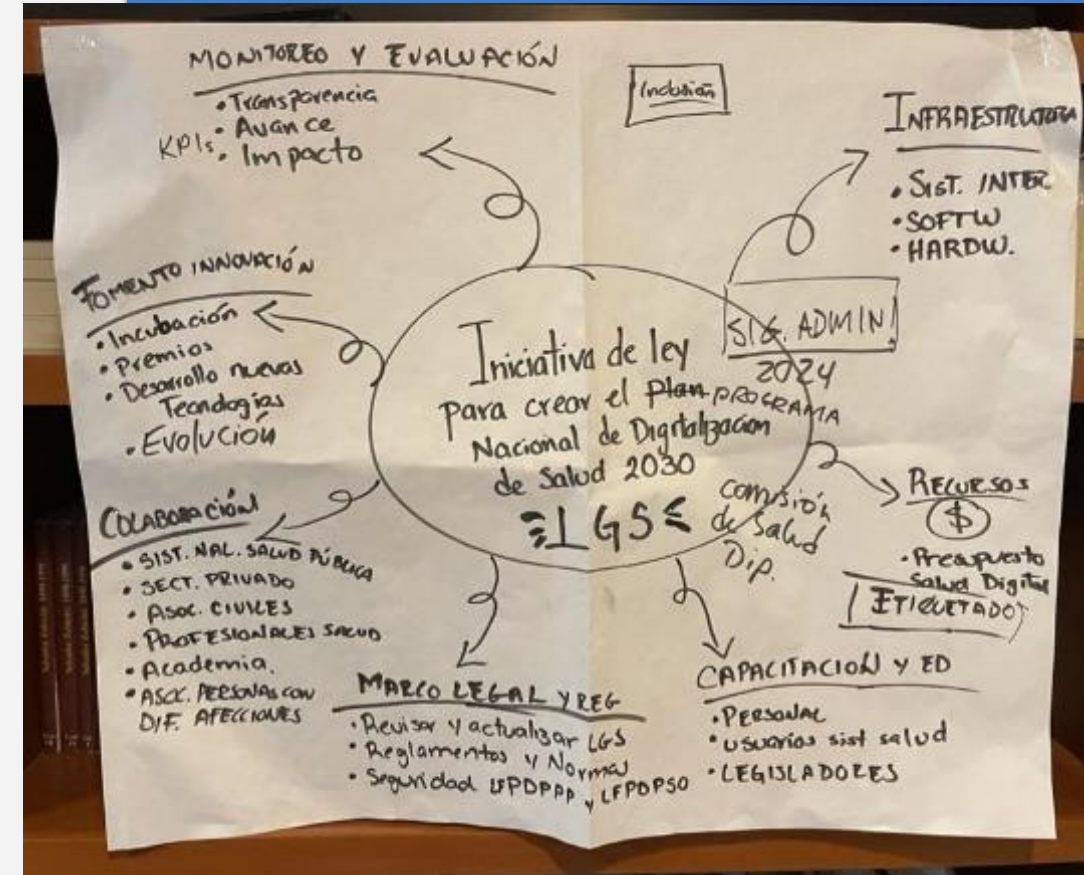 MONITOREO Y EVALUACIÓN
• Transparencia
• Avance
KPIs • Impacto
Inclusión
INFRAESTRUCTURA
• SIST. INTER.
• SOFTW
• HARDW.
FOMENTO INNOVACIÓN
• Incubación
• Premios
• Desarrollo nuevas
Tecnologías
• Evolución
Iniciativa de ley
para crear el Plan PROGRAMA
Nacional de Digitalización
de Salud 2030
LGS
SIG. ADMIN!
2024
comisión
de Salud
Dip.
RECURSOS
$
• Presupuesto
Salud Digital
ETIQUETADO
COLABORACIÓN
• SIST. NAL. SALUD PÚBLICA
• SECT. PRIVADO
• ASOC. CIVILES
• PROFESIONALES SALUD
• Academia.
• ASOC. PERSONAS CON
DIF. AFECCIONES
MARCO LEGAL Y REG
• Revisar y actualizar LGS
• Reglamentos y Normas
• Seguridad LFPDPPP y LFPDPSO
CAPACITACIÓN Y ED
• PERSONAL
• usuarios sist salud
• LEGISLADORES